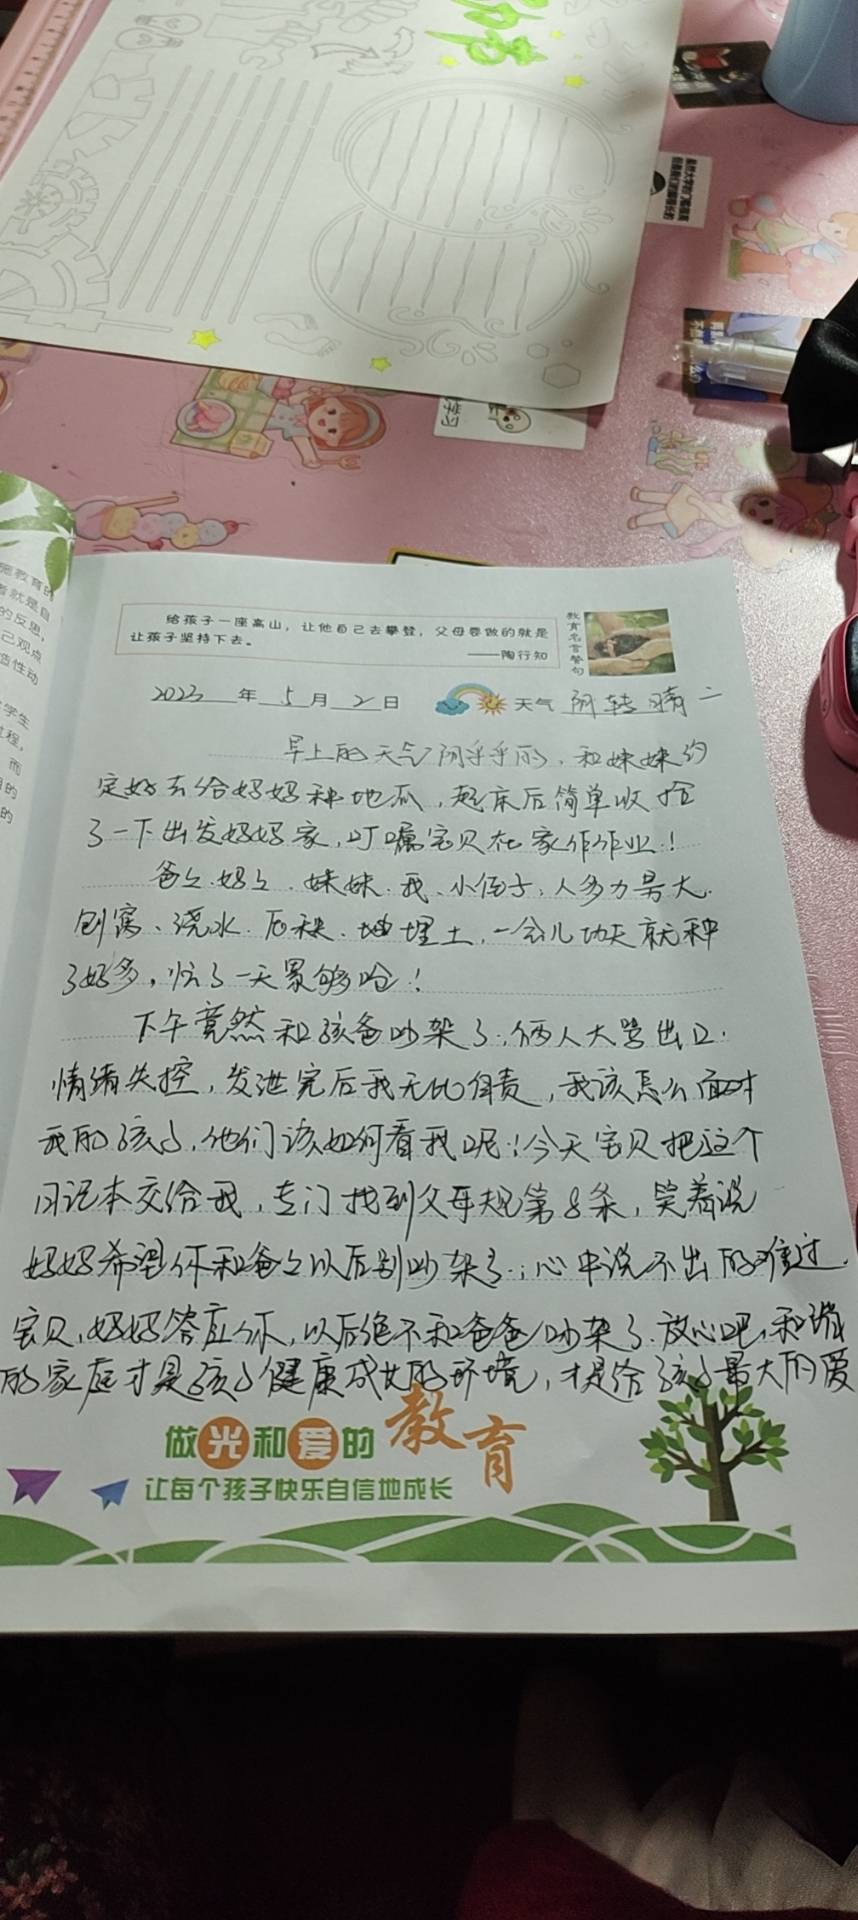 给孩子一座高山，让他自己去攀登，父母要做的就是
让孩子坚持下去。
——陶行知
教育名言警句
2023年5月2日 天气 阴转晴 二
早上的天气阴乎乎的，和妹妹约
定好去给妈妈种地瓜，起床后简单收拾
了一下出发妈妈家，叮嘱宝贝在家作作业！
爸爸、妈妈、妹妹、我、小侄子，人多力量大.
刨窝、浇水、压秧、埋土，一会儿功夫就种
了好多，忙了一天累够呛！
下午竟然和孩爸吵架了，俩人大骂出口.
情绪失控，发泄完后我无比自责，我该怎么面对
我的孩子，他们该如何看我呢！今天宝贝把这个
日记本交给我，专门找到父母规第8条，笑着说
妈妈希望你和爸爸以后别吵架了，心中说不出的难过.
宝贝，妈妈答应你，以后绝不和爸爸吵架了.放心吧，和谐
的家庭才是孩子健康成长的环境，才是给孩子最大的爱
做光和爱的教育
让每个孩子快乐自信地成长
施教育的
者就是自
的反思，
己观点
造性动
学生
过程，
而
的
的
学习